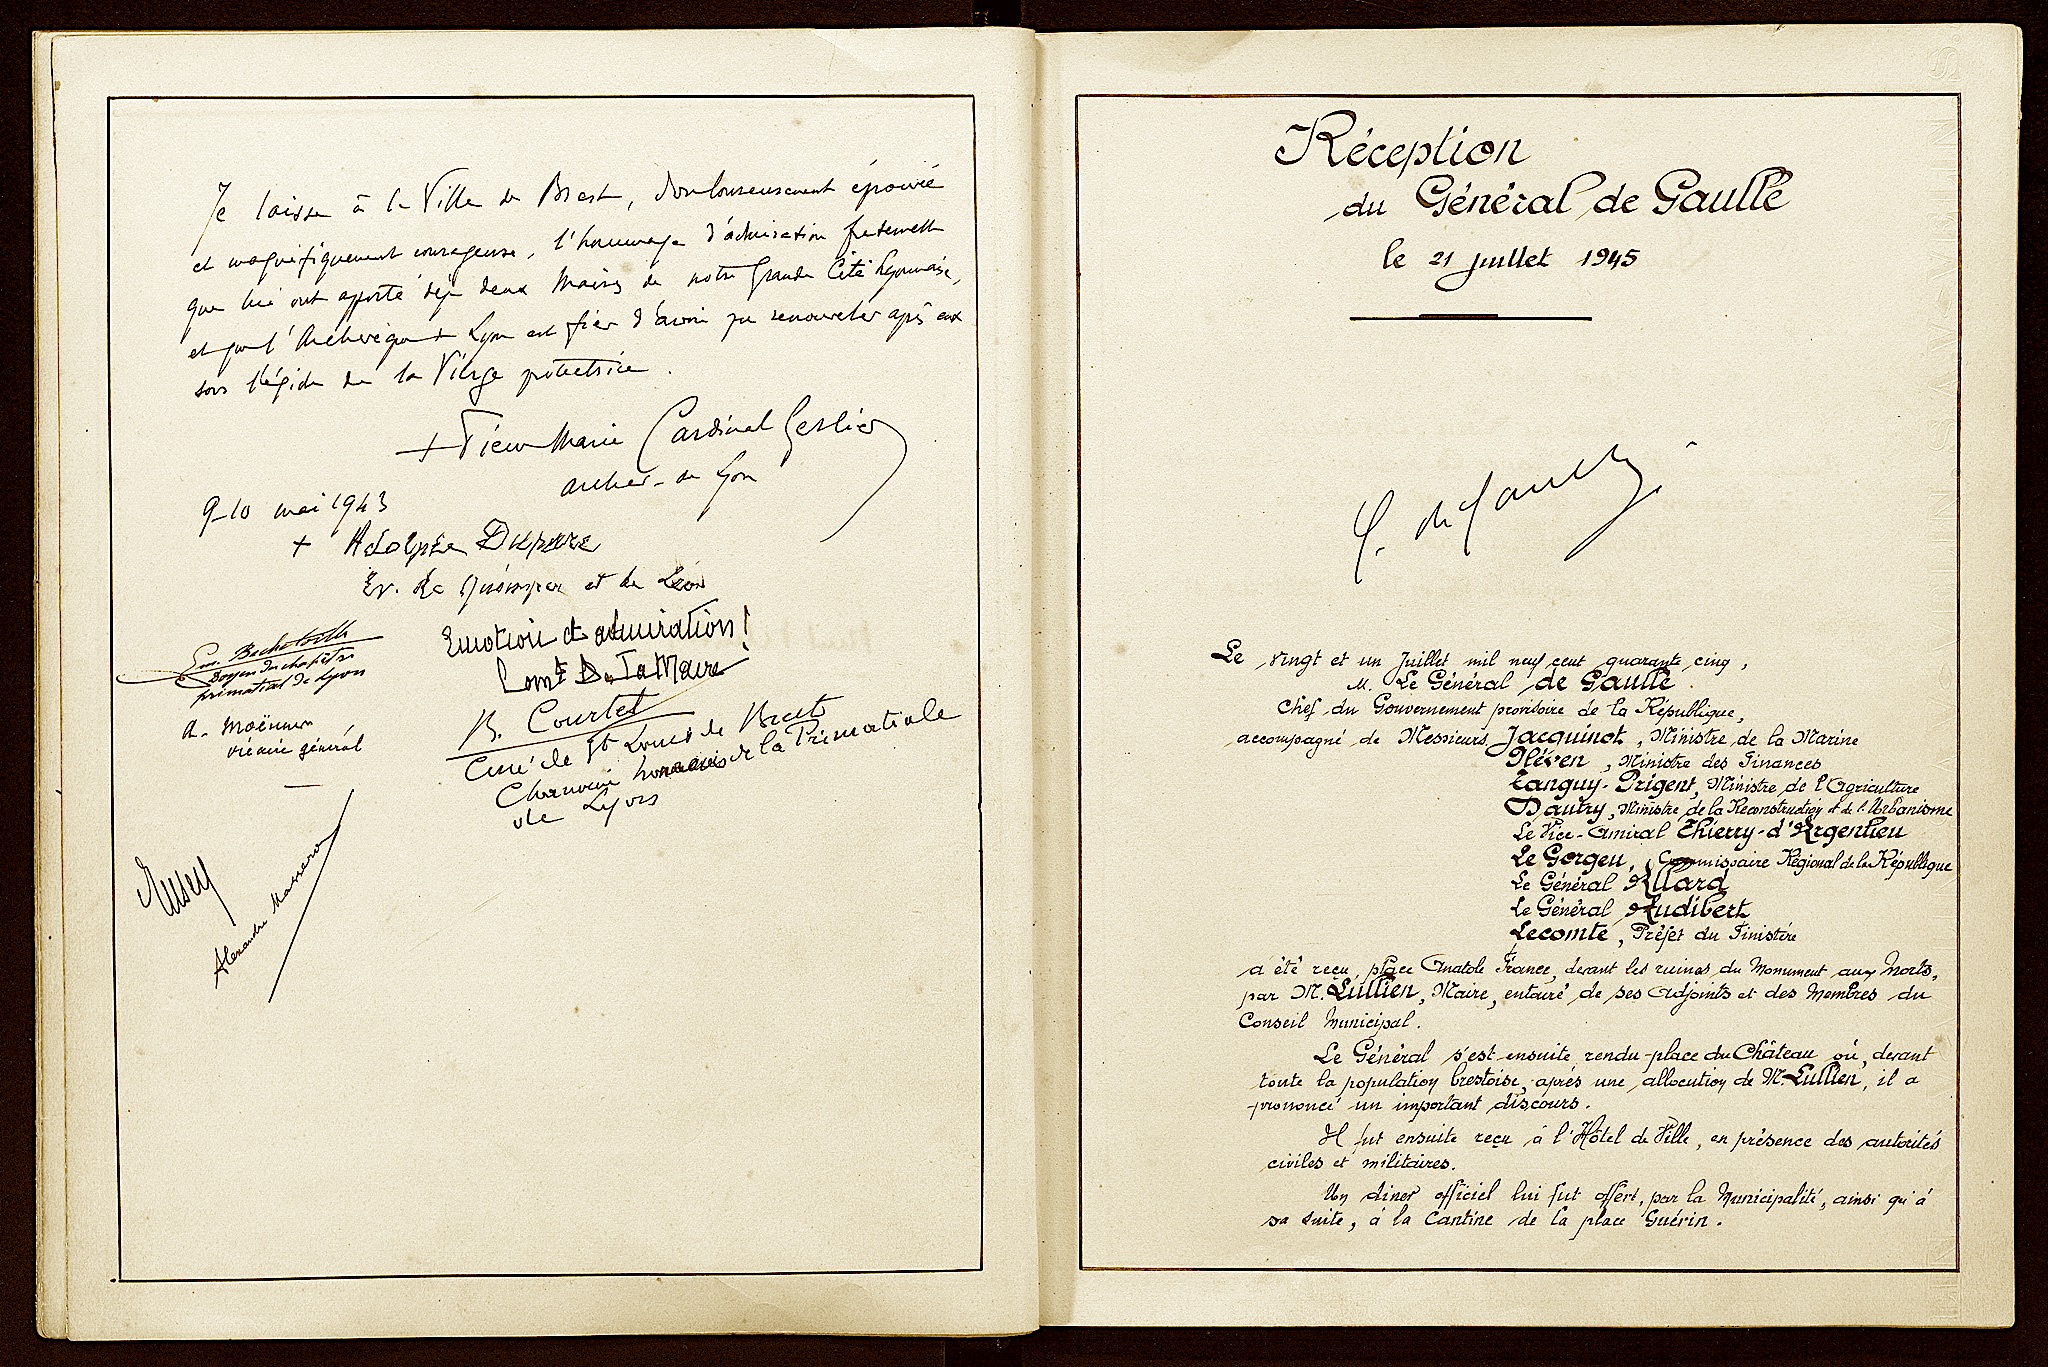 Je laisse à la Ville de Brest, douloureusement éprouvée
et magnifiquement courageuse, l'hommage d'admiration fraternelle
que lui ont apporté déjà deux Maires de notre Grande Cité lyonnaise,
et que l'Archevêque de Lyon est fier d'avoir pu renouveler après eux
sous l'égide de la Vierge protectrice.
+ Pierre Marie Cardinal Gerlier
archev. de Lyon
9-10 mai 1943
+ Adolphe Duparc
Ev. de Quimper et de Léon
Emotion et admiration!
Em. Bechetoille
Doyen du chapitre
primatial de Lyon
A. Moënner
vicaire général
B. Courtet
Curé de St Louis de Brest
Chanoine honoraire de la Primatiale
de Lyon
Alexandre Masseron
Réception
du Général de Gaulle
le 21 juillet 1945
C. de Gaulle
Le vingt et un Juillet mil neuf cent quarante cinq,
M. Le Général de Gaulle
Chef du Gouvernement provisoire de la République,
accompagné de Messieurs Jacquinot, Ministre de la Marine
Pléven, Ministre des Finances
Tanguy-Prigent, Ministre de l'Agriculture
Dautry, Ministre de la Reconstruction et de l'Urbanisme
Le Vice-Amiral Thierry-d'Argenlieu
Le Gorgeu, Commissaire Régional de la République
Le Général Allard
Le Général Audibert
Lecomte, Préfet du Finistère
a été reçu, place Anatole France, devant les ruines du Monument aux Morts,
par M. Lullien, Maire, entouré de ses Adjoints et des Membres du
Conseil Municipal.
Le Général s'est ensuite rendu place du Château où, devant
toute la population brestoise, après une allocution de M. Lullien, il a
prononcé un important discours.
Il fut ensuite reçu à l'Hôtel de Ville, en présence des autorités
civiles et militaires.
Un diner officiel lui fut offert, par la Municipalité, ainsi qu'à
sa suite, à la Cantine de la place Guérin.